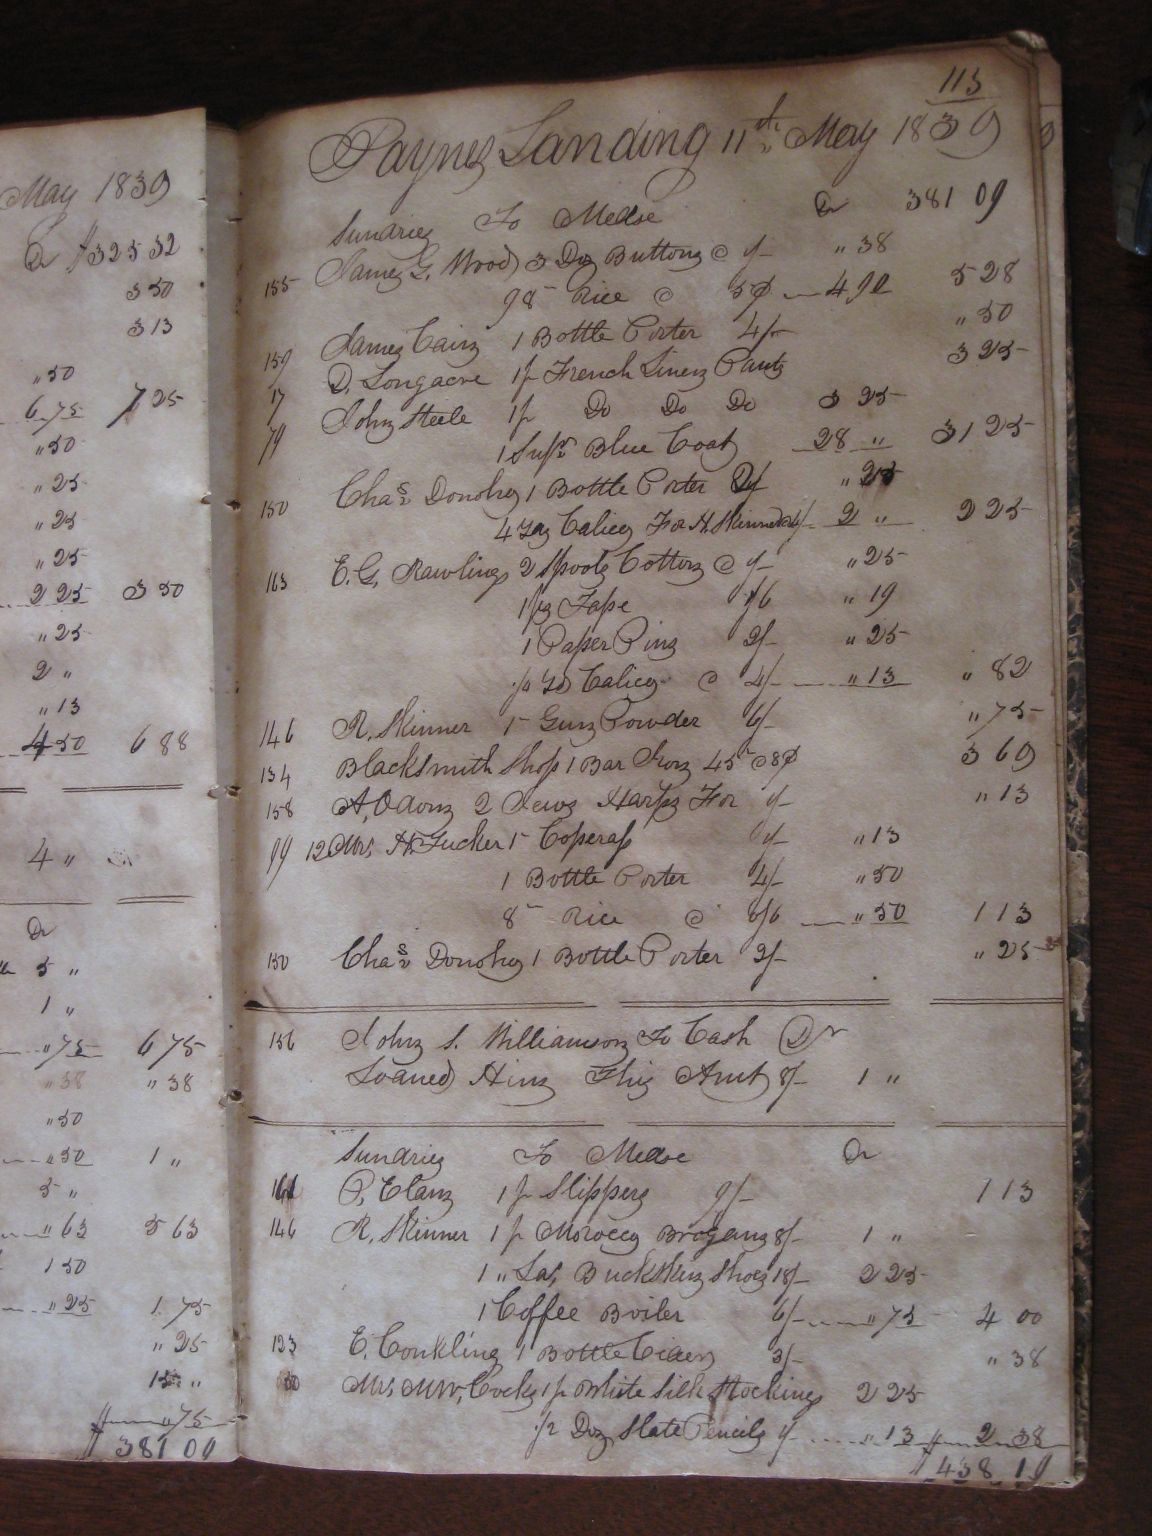 May 1839
Dr $325 32
3 50
3 13
" 50
6 75 7 25
" 50
" 25
" 25
" 25
2 25 3 50
" 25
2 "
" 13
4 50 6 88
4 "
Dr
5 "
1 "
" 75 6 75
" 38 " 38
" 50
" 50 1 "
5 "
" 63 5 63
1 50
" 25 1 75
" 25
15 "
" 75
$381 09
113
Paynes Landing 11th May 1839
Sundries To Medse Dr 381 09
155 James G. Wood 3 Doz Buttons @ 1/- " 38
98 - Rice @ 5¢ 4 90 5 28
159 James Cain 1 Bottle Porter 4/- " 50
17 D. Longacre 1 p French Linen Pants 3 25
79 John Steele 1 p Do Do Do 3 25
1 Supr Blue Coat 28 " 31 25
150 Chas Donohy 1 Bottle Porter 2/- " 25
4 Yds Calico For H. Skinner 4/- 2 " 2 25
163 E. G. Rawlings 2 Spools Cotton @ 1/- " 25
1 pc Tape 1/6 " 19
1 Paper Pins 2/- " 25
1/4 Yd Calico @ 4/- " 13 " 82
146 R. Skinner 1 - Gun Powder 6/- " 75
134 Blacksmith Shop 1 Bar Iron 45 @ 8¢ 3 60
158 A. Odom 2 Jews Harps For 1/- " 13
99 12 Mrs H. Tucker 1 - Coperas 1/- " 13
1 Bottle Porter 4/- " 50
8 - Rice @ /6 " 50 1 13
150 Chas Donohy 1 Bottle Porter 2/- " 25
156 John S. Williamson To Cash Dr
Loaned Him This Amt 8/- 1 "
Sundries To Medse Dr
161 P. Elan 1 p Slippers 9/- 1 13
146 R. Skinner 1 p Morocco Brogans 8/- 1 "
1 " Las Buckskin Shoes 18/- 2 25
1 Coffee Boiler 6/- " 75 4 00
123 E. Conkling 1 Bottle Cider 3/- " 38
30 Mrs M W. Cocks 1 p White Silk Stockings 2 25
1/2 Doz Slate Pencils 1/- " 13 2 38
$438 19